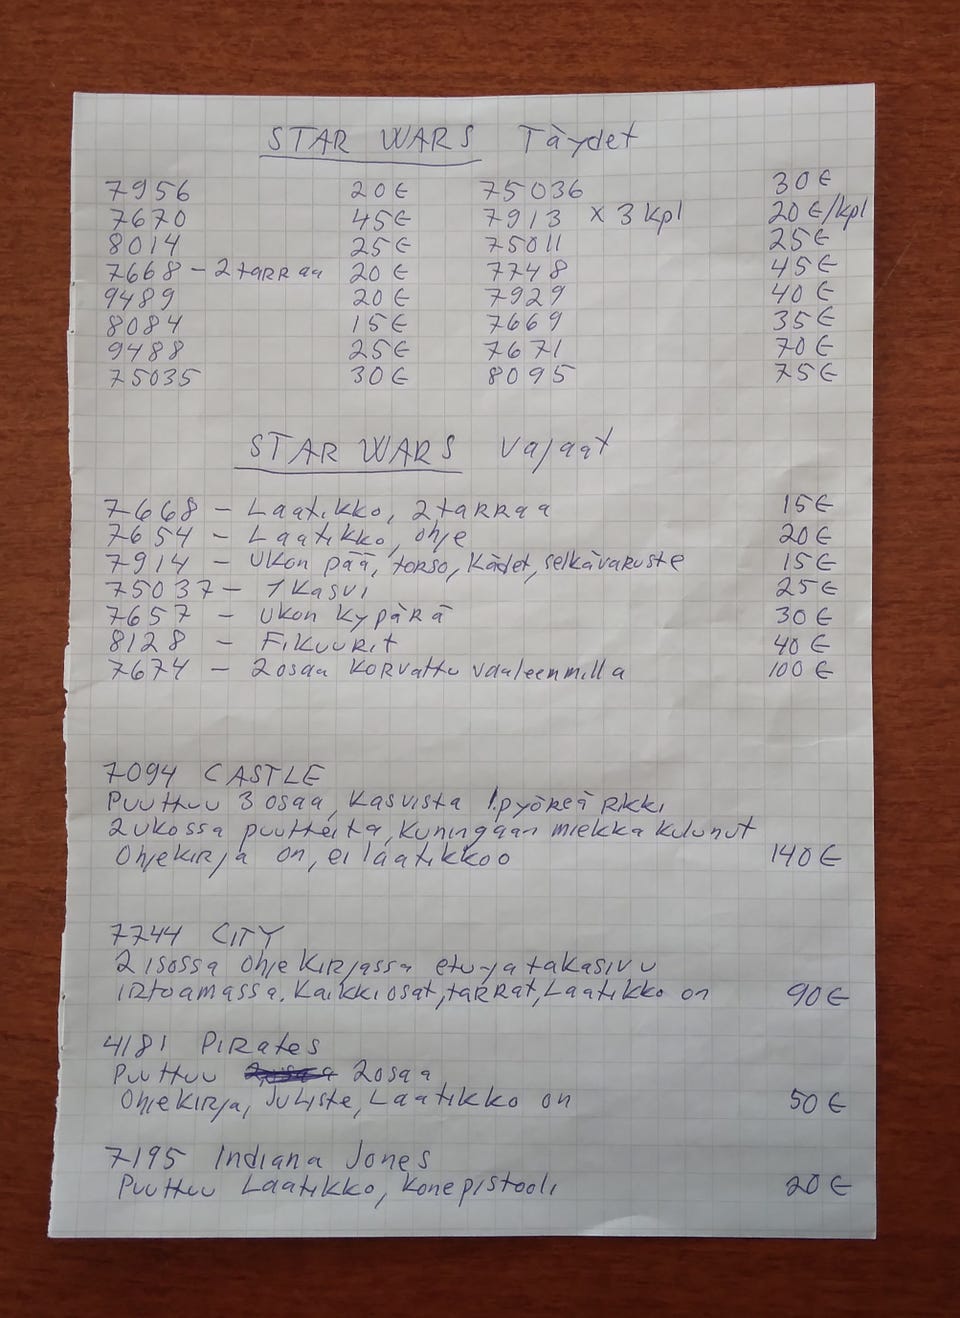 STAR WARS Täydet
7956 20€ 75036 30€
7670 45€ 7913 x 3 kpl 20€/kpl
8014 25€ 75011 25€
7668 - 2 tarraa 20€ 7748 45€
9489 20€ 7929 40€
8084 15€ 7669 35€
9488 25€ 7671 70€
75035 30€ 8095 75€
STAR WARS vajaat
7668 - Laatikko, 2 tarraa 15€
7654 - Laatikko, ohje 20€
7914 - Ukon pää, torso, kädet, selkävaruste 15€
75037 - 1 kasvi 25€
7657 - Ukon kypärä 30€
8128 - Fikuurit 40€
7674 - 2 osaa korvattu vaaleenmilla 100€
7094 CASTLE
Puuttuu 3 osaa, kasvista 1. pyöreä rikki
2 ukossa puutteita, kuningaan miekka kulunut
Ohjekirja on, ei laatikkoo 140€
7744 CITY
2 isossa ohjekirjassa etu-ja takasivu
irtoamassa. Kaikki osat, tarrat, Laatikko on 90€
4181 Pirates
Puuttuu 2 osaa
Ohjekirja, Juliste, Laatikko on 50€
7195 Indiana Jones
Puuttuu Laatikko, konepistooli 20€